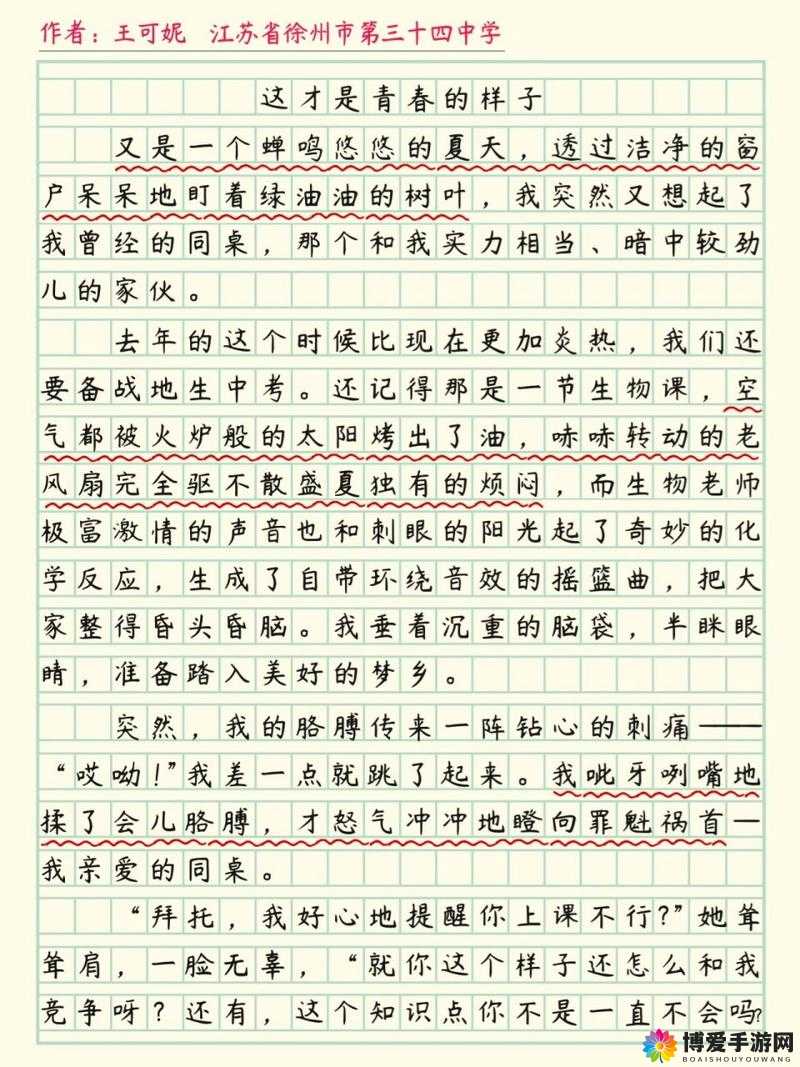 作者：王可妮 江苏省徐州市第三十四中学
这才是青春的样子
又是一个蝉鸣悠悠的夏天，透过洁净的窗
户呆呆地盯着绿油油的树叶，我突然又想起了
我曾经的同桌，那个和我实力相当、暗中较劲
儿的家伙。
去年的这个时候比现在更加炎热，我们还
要备战地生中考。还记得那是一节生物课，空
气都被火炉般的太阳烤出了油，哧哧转动的老
风扇完全驱不散盛夏独有的烦闷，而生物老师
极富激情的声音也和刺眼的阳光起了奇妙的化
学反应，生成了自带环绕音效的摇篮曲，把大
家整得昏头昏脑。我垂着沉重的脑袋，半眯眼
睛，准备踏入美好的梦乡。
突然，我的胳膊传来一阵钻心的刺痛——
“哎呦！”我差一点就跳了起来。我呲牙咧嘴地
揉了会儿胳膊，才怒气冲冲地瞪向罪魁祸首—
我亲爱的同桌。
“拜托，我好心地提醒你上课不行？”她耸
耸肩，一脸无辜，“就你这个样子还怎么和我
竞争呀？还有，这个知识点你不是一直不会吗？
博爱手游网
BOAISHOUYOUWANG